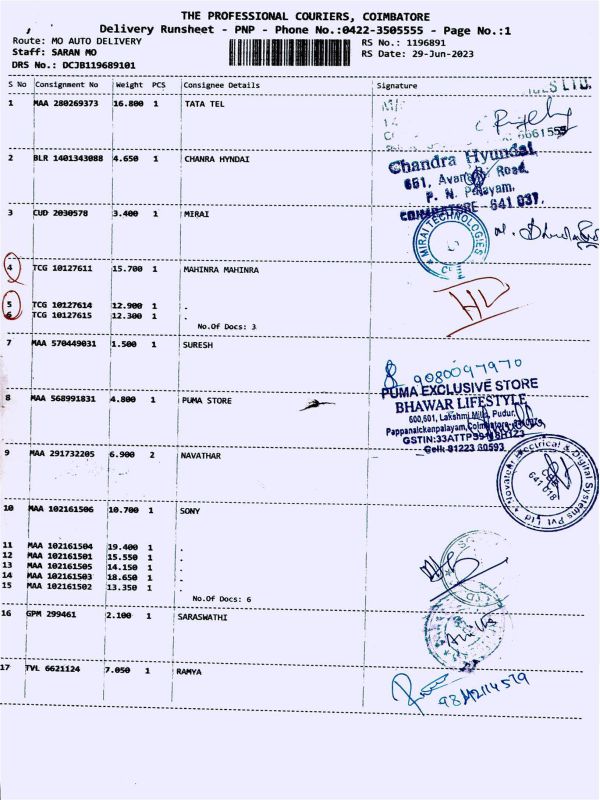 THE PROFESSIONAL COURIERS, COIMBATORE
Delivery Runsheet - PNP - Phone No.:0422-3505555 - Page No.:1
Route: MO AUTO DELIVERY
RS No.: 1196891
Staff: SARAN MO
RS Date: 29-Jun-2023
DRS No.: DCJB119689101
S No Consignment No Weight PCS Consignee Details Signature
1 MAA 280269373 16.800 1 TATA TEL
2 BLR 1401343088 4.650 1 CHANRA HYNDAI
Chandra Hyundai
651, Road,
P. N. Palayam,
COIMBATORE - 641 037.
3 CUD 2030578 3.400 1 MIRAI
MIRAI TECHNOLOGIES
4 TCG 10127611 15.700 1 MAHINRA MAHINRA
HD
5 TCG 10127614 12.900 1 .
6 TCG 10127615 12.300 1 .
No.Of Docs: 3
7 MAA 570449031 1.500 1 SURESH
9080097970
8 MAA 568991831 4.800 1 PUMA STORE
PUMA EXCLUSIVE STORE
BHAWAR LIFESTYLE
600,601, Lakshmi Mills, Pudur,
Pappanaickenpalayam,
9 MAA 291732205 6.900 2 NAVATHAR
Electrical & Digital Systems Pvt Ltd
641 018
10 MAA 102161506 10.700 1 SONY
11 MAA 102161504 19.400 1 .
12 MAA 102161501 15.550 1 .
13 MAA 102161505 14.150 1 .
14 MAA 102161503 18.650 1 .
15 MAA 102161502 13.350 1 .
No.Of Docs: 6
16 GPM 299461 2.100 1 SARASWATHI
17 TVL 6621124 7.050 1 RAMYA